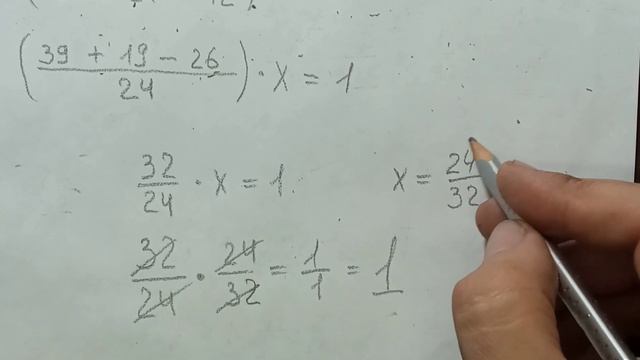 (39 + 19 - 26 / 24) · x = 1
32/24 · x = 1. x = 24/32
32/24 · 24/32 = 1/1 = 1